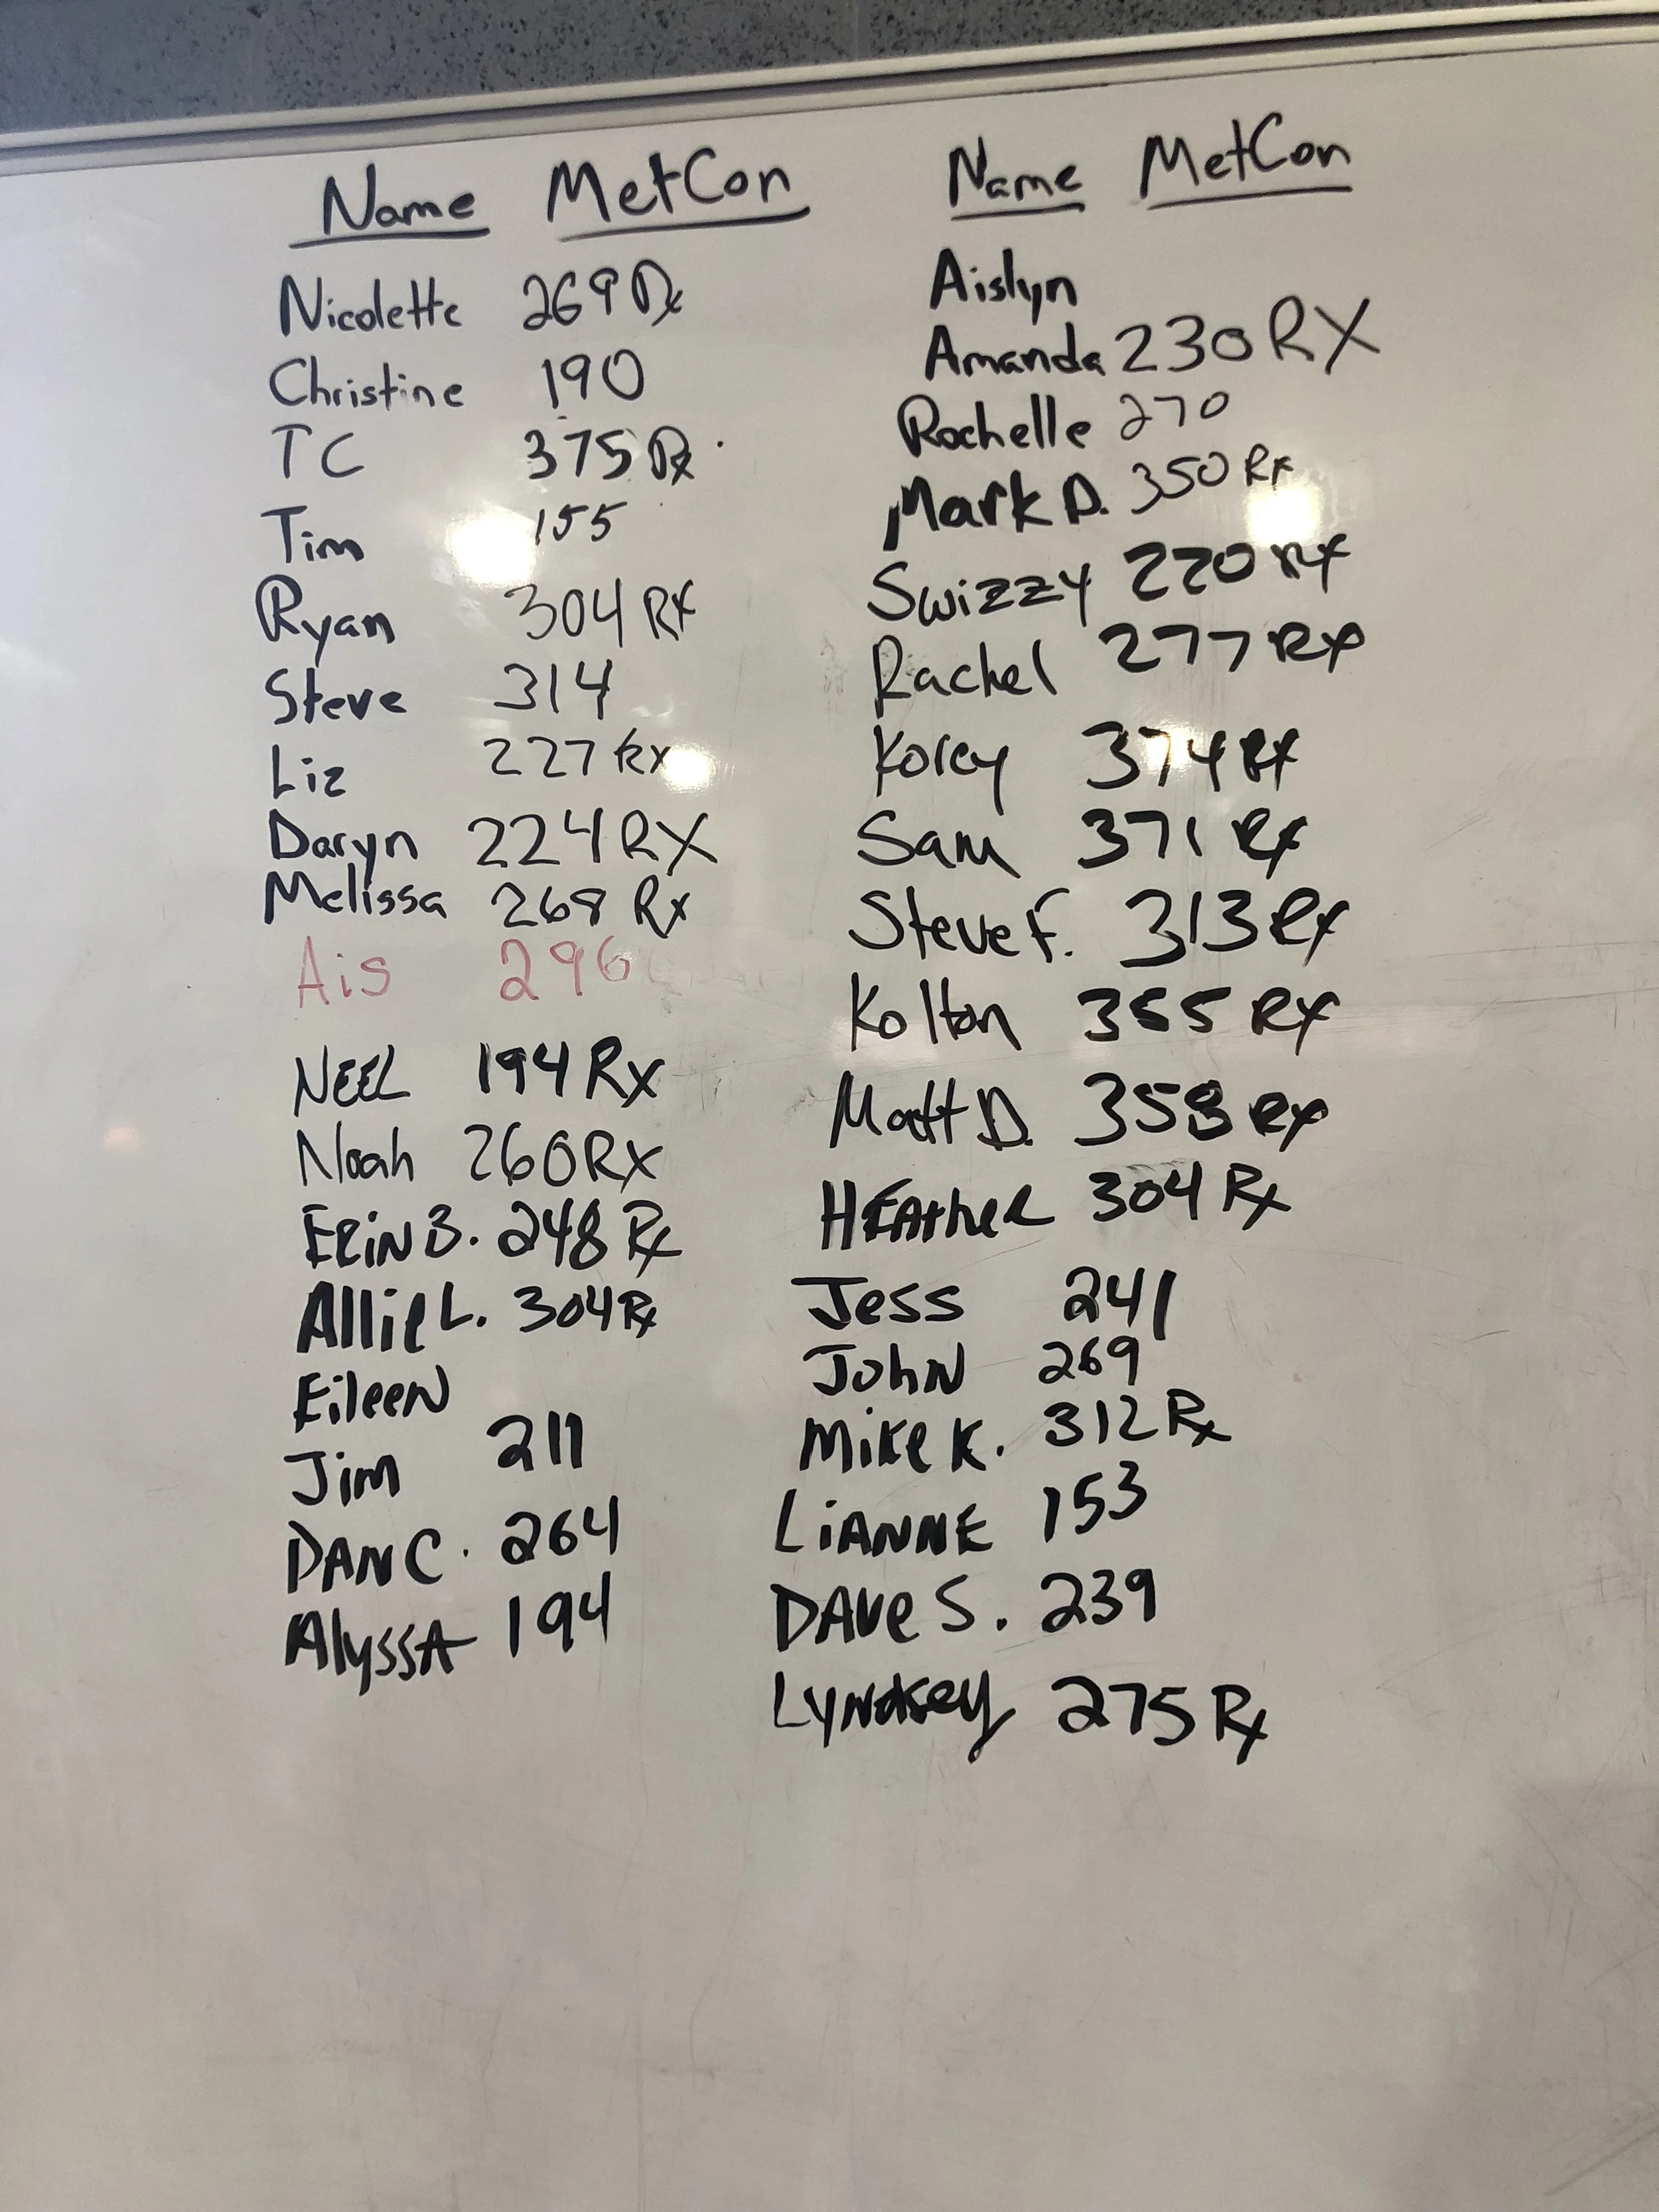 Name MetCon
Nicolette 269 Rx
Christine 190
TC 375 Rx
Tim 155
Ryan 304 RX
Steve 314
Liz 227 Rx
Daryn 224 RX
Melissa 268 Rx
Ais 296
NEEL 194 Rx
Noah 260 RX
ERiN B. 248 Rx
Allie L. 304 Rx
EileeN
Jim 211
DAN C. 264
AlyssA 194
Name MetCon
Aislyn
Amanda 230 RX
Rochelle 270
Mark D. 350 RX
Swizzy 220 RX
Rachel 277 RX
Korey 374 RX
Sam 371 RX
Steve F. 313 RX
Kolton 355 RX
Matt D. 358 RX
HEAtheR 304 Rx
Jess 241
JohN 269
Mike K. 312 Rx
LiANNE 153
DAve S. 239
LyNdsey 275 Rx